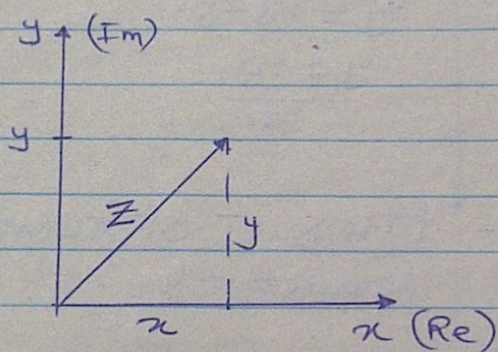 y (Im)
y
Z
y
x
x (Re)